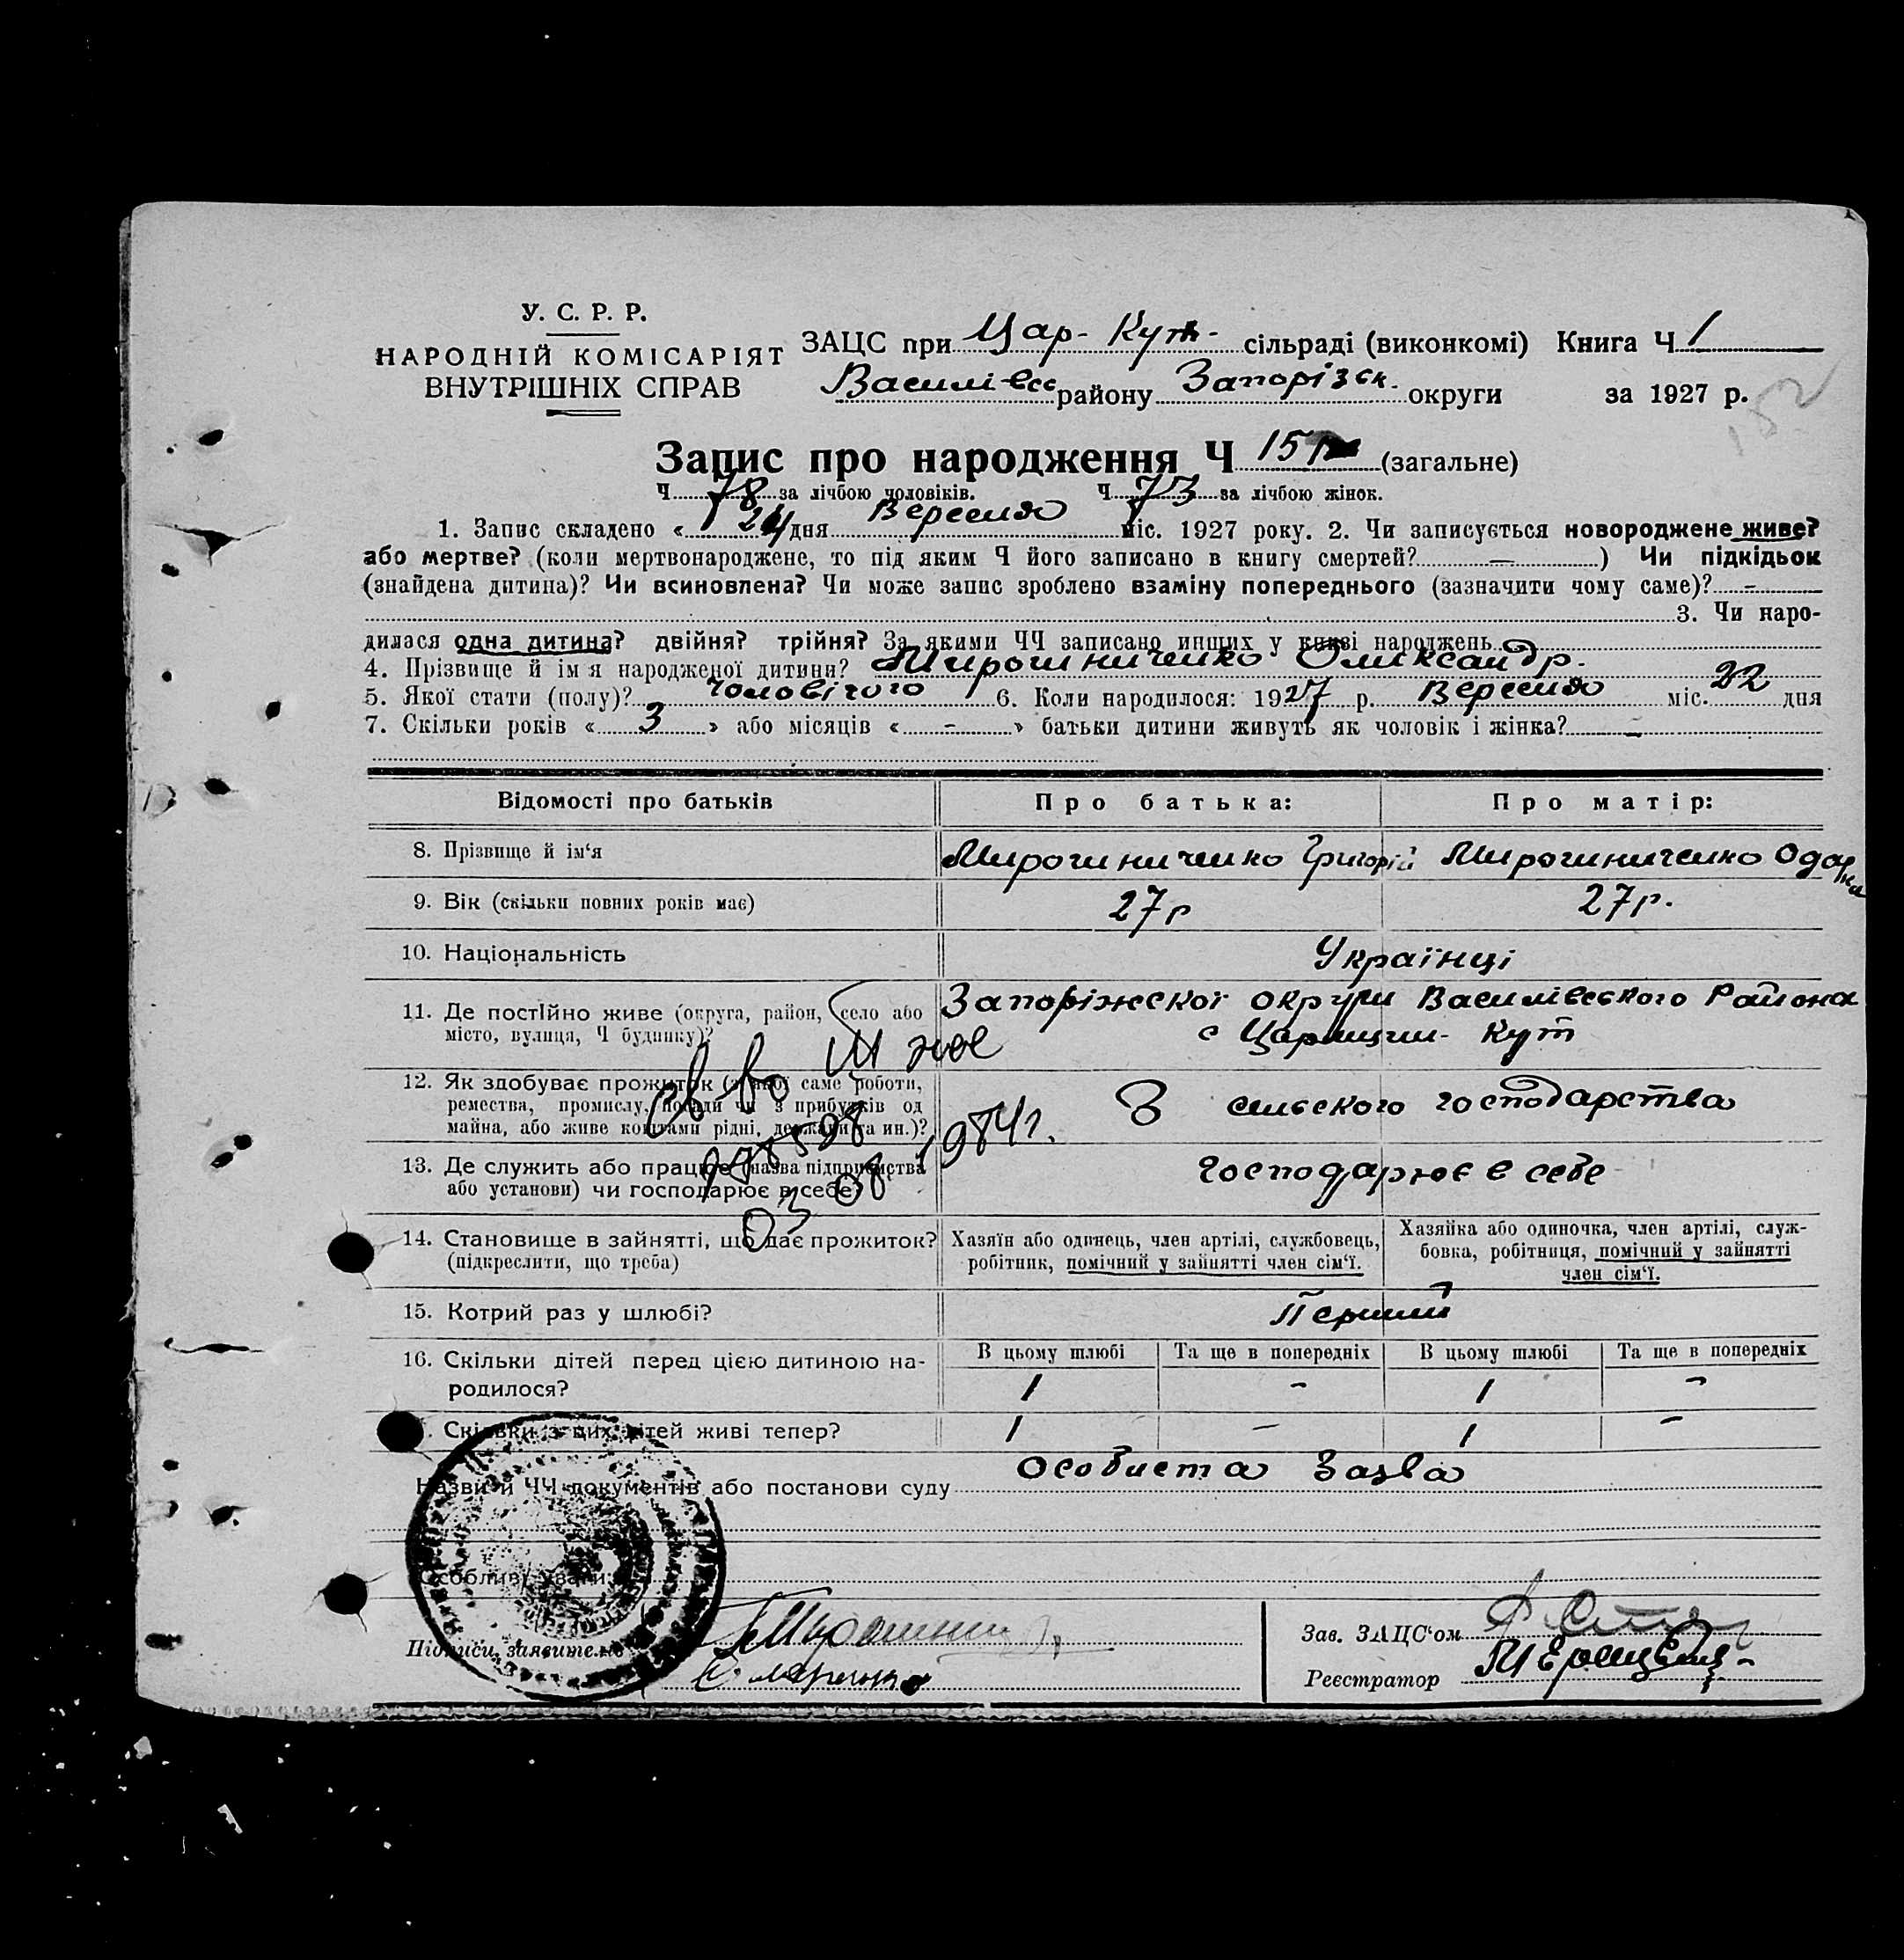 У. С. Р. Р.
НАРОДНІЙ КОМІСАРІЯТ
ВНУТРІШНІХ СПРАВ
ЗАЦС при Цар- Кут- сільраді (виконкомі) Книга Ч 1
Василівс району Запорізьк. округи за 1927 р.
152
Запис про народження Ч 151 (загальне)
Ч 78 за лічбою чоловіків. Ч 73 за лічбою жінок.
1. Запис складено « 24 дня Вересня міс. 1927 року. 2. Чи записується новороджене живе?
або мертве? (коли мертвонароджене, то під яким Ч його записано в книгу смертей? — ) Чи підкідьок
(знайдена дитина)? Чи всиновлена? Чи може запис зроблено взаміну попереднього (зазначити чому саме)? -
3. Чи наро-
дилася одна дитина? двійня? трійня? За якими ЧЧ записано инших у книзі народжень
4. Прізвище й ім'я народженої дитини? Мирошниченко Олександр.
5. Якої стати (полу)? чоловічого 6. Коли народилося: 1927 р. Вересня міс. 22 дня
7. Скільки років « 3 » або місяців « - » батьки дитини живуть як чоловік і жінка? -
Відомості про батьків Про батька: Про матір:
8. Прізвище й ім'я Мирошниченко Григорій Мирошниченко Одарка
9. Вік (скільки повних років має) 27р 27р.
10. Національність Українці
11. Де постійно живе (округа, район, село або Запоріжської округи Василівського Района
місто, вулиця, Ч будинку)? с Царицин- Кут
св-во III жс
12. Як здобуває прожиток (з якої саме роботи,
ремества, промислу, посади чи з прибутків од З сельского господарства
майна, або живе коштами рідні, держави та ин.)?
03 08 1984г.
13. Де служить або працює (назва підприємства Господарює в себе
або установи) чи господарює в себе?
14. Становище в зайнятті, що дає прожиток? Хазяїн або одинець, член артілі, службовець, Хазяйка або одиночка, член артілі, служ-
(підкреслити, що треба) робітник, помічний у зайнятті член сім'ї. бовка, робітниця, помічний у зайнятті
член сім'ї.
15. Котрий раз у шлюбі? Перший
16. Скільки дітей перед цією дитиною на- В цьому шлюбі Та ще в попередніх В цьому шлюбі Та ще в попередніх
родилося? 1 - 1 -
Скільки з цих дітей живі тепер? 1 - 1 -
Назви й ЧЧ документів або постанови суду Особиста Заява
Особливі уваги:
Підписи, заявителів
Зав. ЗАЦС'ом
Реєстратор